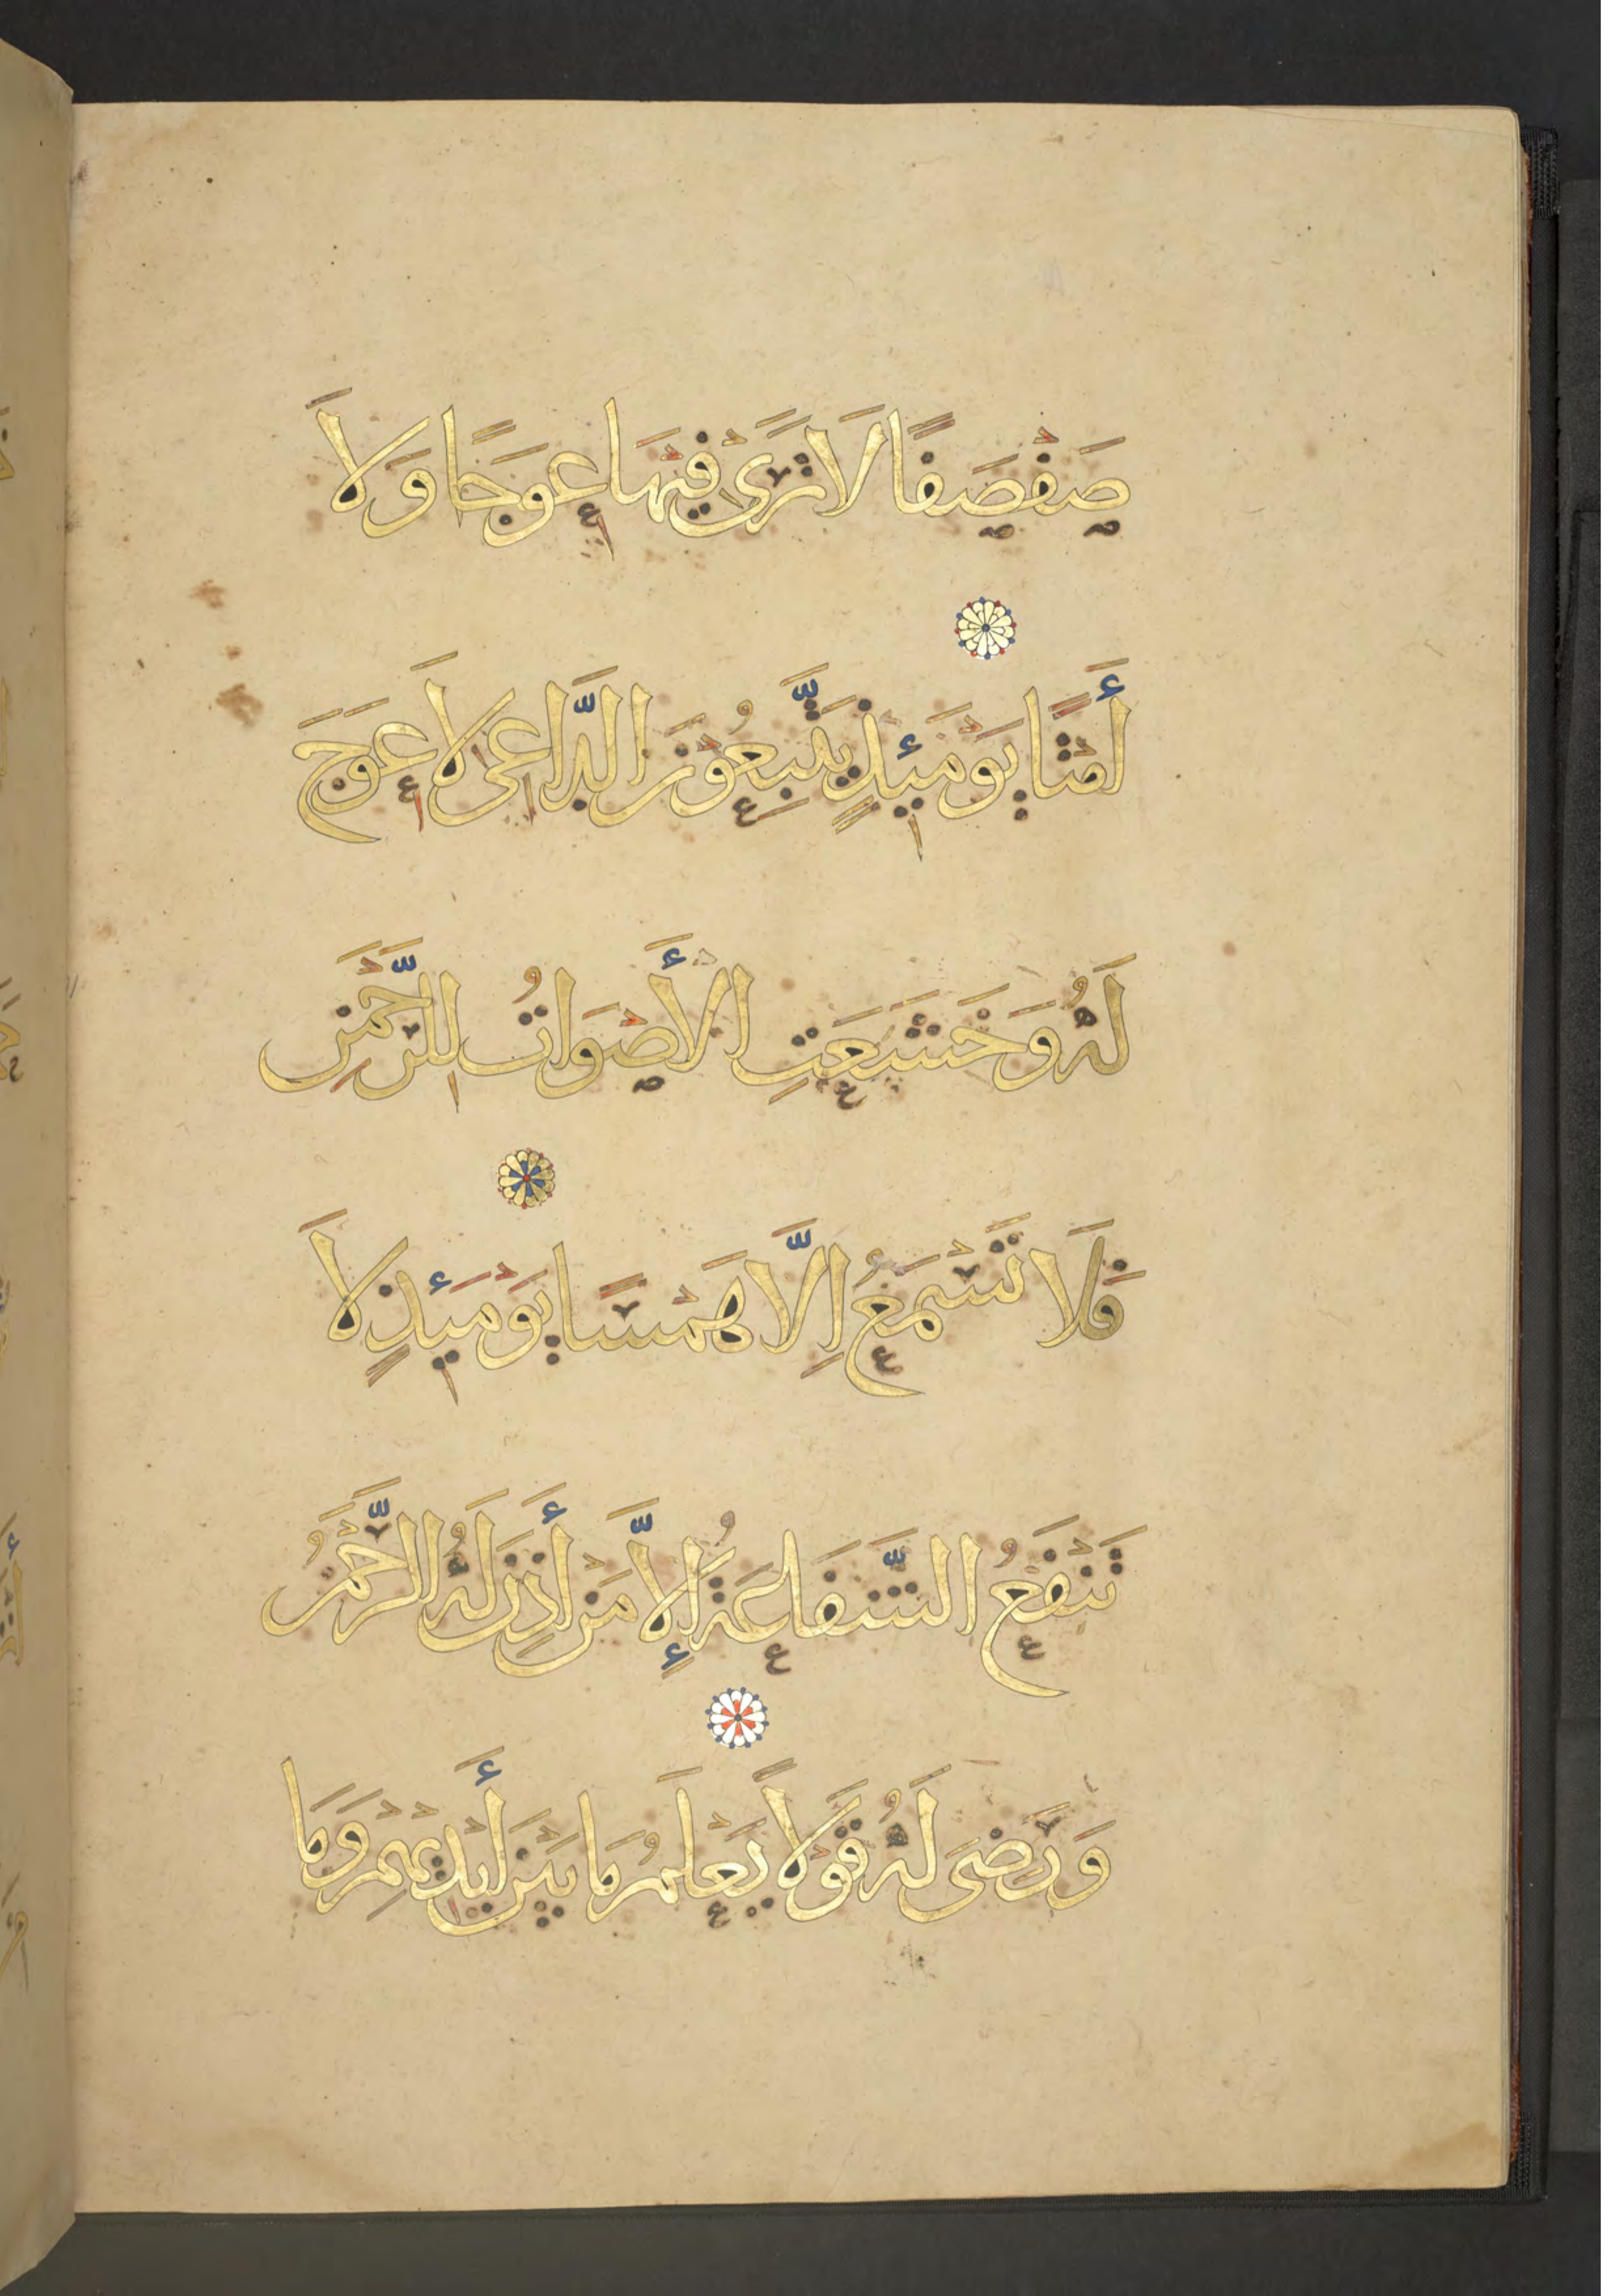 صَفْصَفًا لَا تَرَىٰ فِيهَا عِوَجًا وَلَا
أَمْتًا يَوْمَئِذٍ يَتَّبِعُونَ الدَّاعِيَ لَا عِوَجَ
لَهُ وَخَشَعَتِ الْأَصْوَاتُ لِلرَّحْمَنِ
فَلَا تَسْمَعُ إِلَّا هَمْسًا يَوْمَئِذٍ لَا
تَنْفَعُ الشَّفَاعَةُ إِلَّا مَنْ أَذِنَ لَهُ الرَّحْمَنُ
وَرَضِيَ لَهُ قَوْلًا يَعْلَمُ مَا بَيْنَ أَيْدِيهِمْ وَمَا